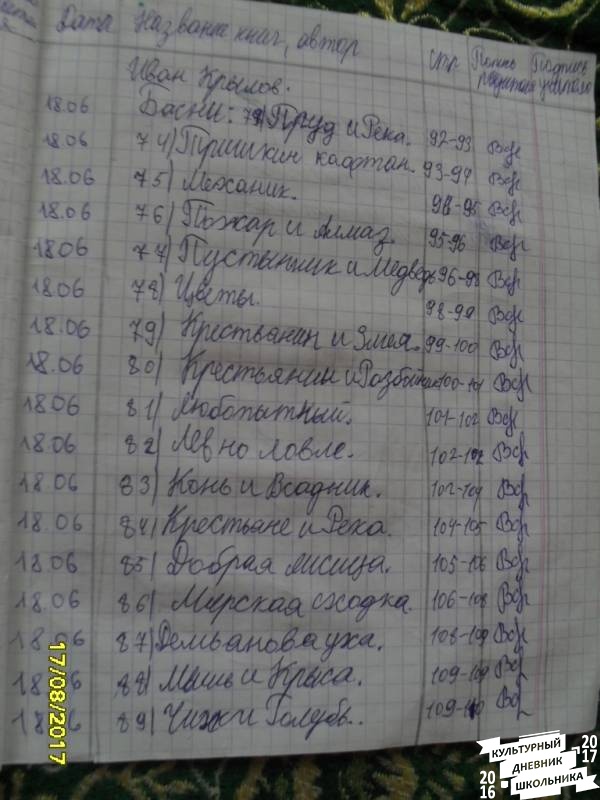 Дата Название книг, автор Стр Подпись родителя Подпись учителя
Иван Крылов.
18.06 Басни: 73) Пруд и Река. 92-93 Вср
18.06 74) Тришкин кафтан. 93-94 Вср
18.06 75) Механик. 94-95 Вср
18.06 76) Пожар и Алмаз. 95-96 Вср
18.06 77) Пустынник и Медведь 96-98 Вср
18.06 78) Цветы. 98-99 Вср
18.06 79) Крестьянин и Змея. 99-100 Вср
18.06 80) Крестьянин и Разбойник 100-101 Вср
18.06 81) Любопытный. 101-102 Вср
18.06 82) Лев на ловле. 102-102 Вср
18.06 83) Конь и Всадник. 102-104 Вср
18.06 84) Крестьяне и Река. 104-105 Вср
18.06 85) Добрая лисица. 105-106 Вср
18.06 86) Мирская сходка. 106-108 Вср
18.06 87) Демьянова уха. 108-109 Вср
18.06 88) Мышь и Крыса. 109-109 Вср
18.06 89) Чиж и Голубь. 109-110 Вср
17/08/2017
КУЛЬТУРНЫЙ
ДНЕВНИК
ШКОЛЬНИКА
2016
2017